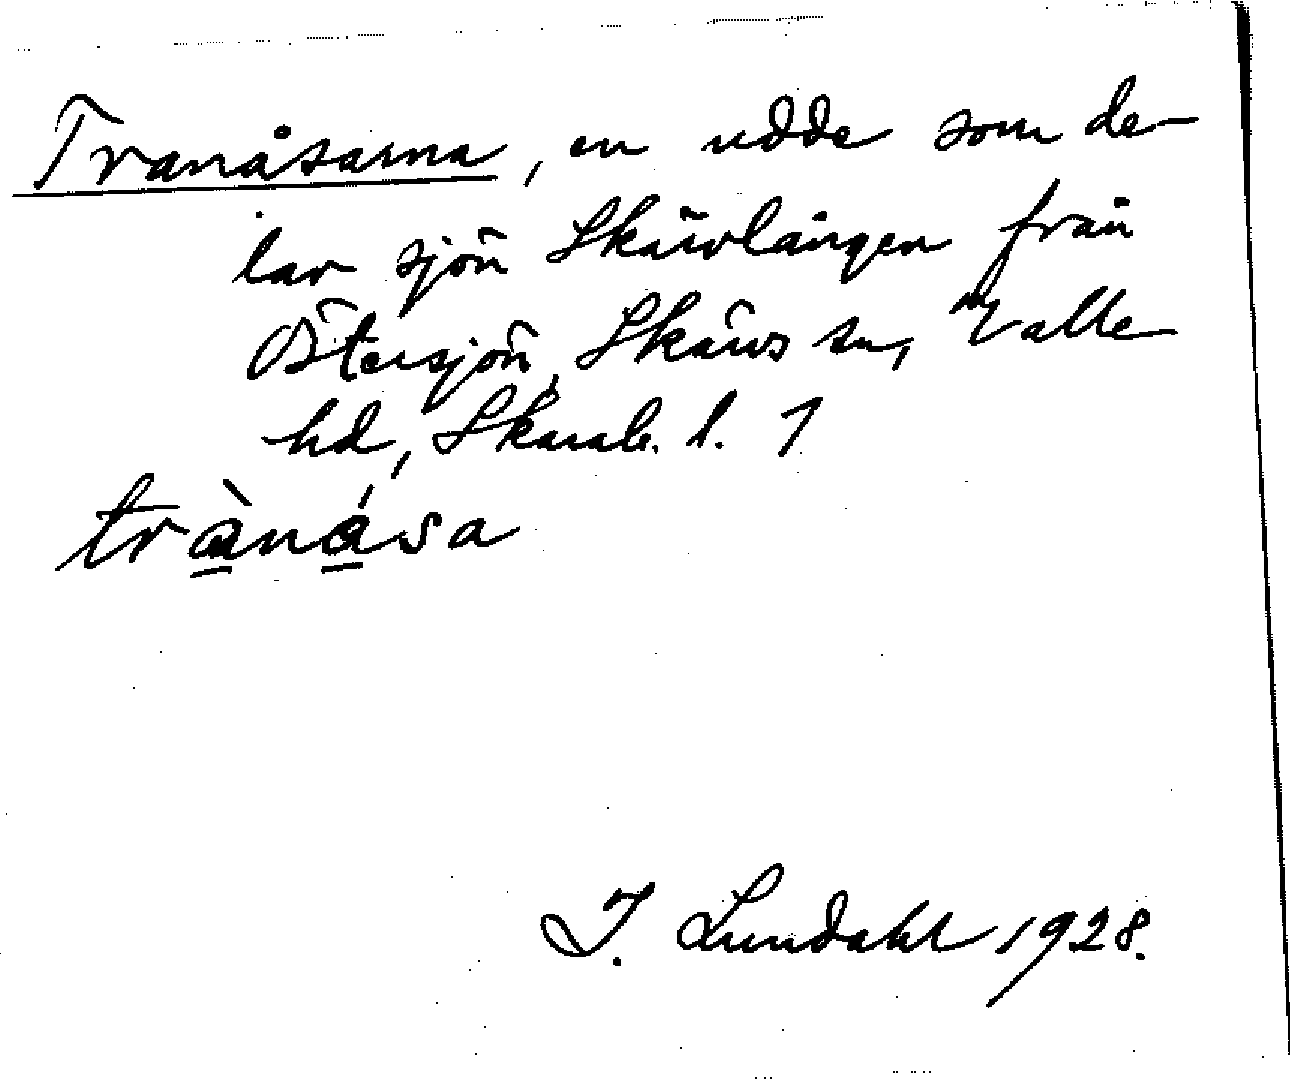 Tranåsarna, en udde som de-
lar sjön Skärvlången från
Östersjön, Skärvs sn, Valle
hd, Skarab. l. 1
trànása
I. Lundahl 1928.